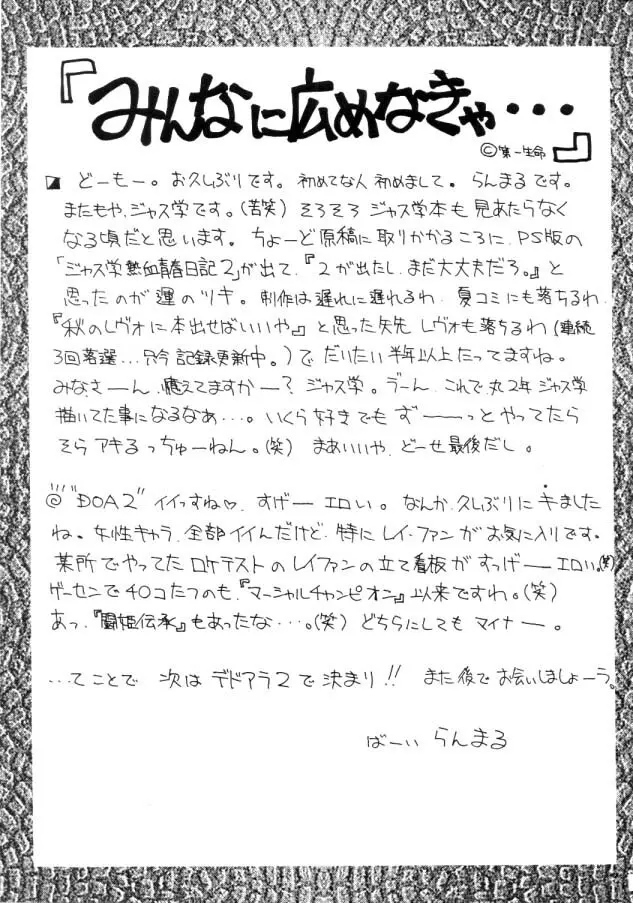 『みんなに広めなきゃ・・・』
©第一生命
どーもー。お久しぶりです。初めてな人初めまして。らんまるです。
またもや、ジャス学です。(苦笑) そろそろ ジャス学本も 見あたらなく
なる頃だと思います。ちょーど原稿に取りかかるころに、PS版の
「ジャス学熱血青春日記2」が出て、『2が出たし、まだ大丈夫だろ。』と
思ったのが運のツキ。制作は遅れに遅れるわ、夏コミにも落ちるわ、
『秋のレヴォに本出せばいいや』と思った矢先 レヴォも落ちるわ(連続
3回落選...只今記録更新中。)で だいたい半年以上たってますね。
みなさーん、憶えてますかー？ジャス学。うーん、これで、丸2年ジャス学
描いてた事になるなあ・・・。いくら好きでも ずーーーっとやってたら
そら アキるっちゅーねん。(笑) まあいいや、どーせ最後だし。
@ "DOA2" イイっすね♡、すげー エロい。なんか、久しぶりに キました
ね。女性キャラ、全部イイんだけど、特にレイ・ファンがお気に入りです。
某所でやってたロケテストのレイファンの立て看板がすっげー エロい。(笑)
ゲーセンで40コたつのも、『マーシャルチャンピオン』以来ですわ。(笑)
あっ、『闘姫伝承』もあったな・・・。(笑) どちらにしても マイナー。
...てことで 次は デドアラ2で決まり!! また後で お会いしましょーう。
ばーい らんまる